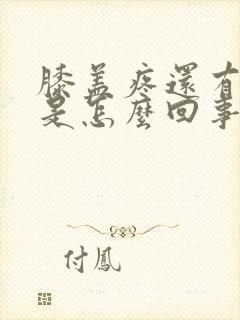 膝盖疼還有
是怎麼回事
付鳳